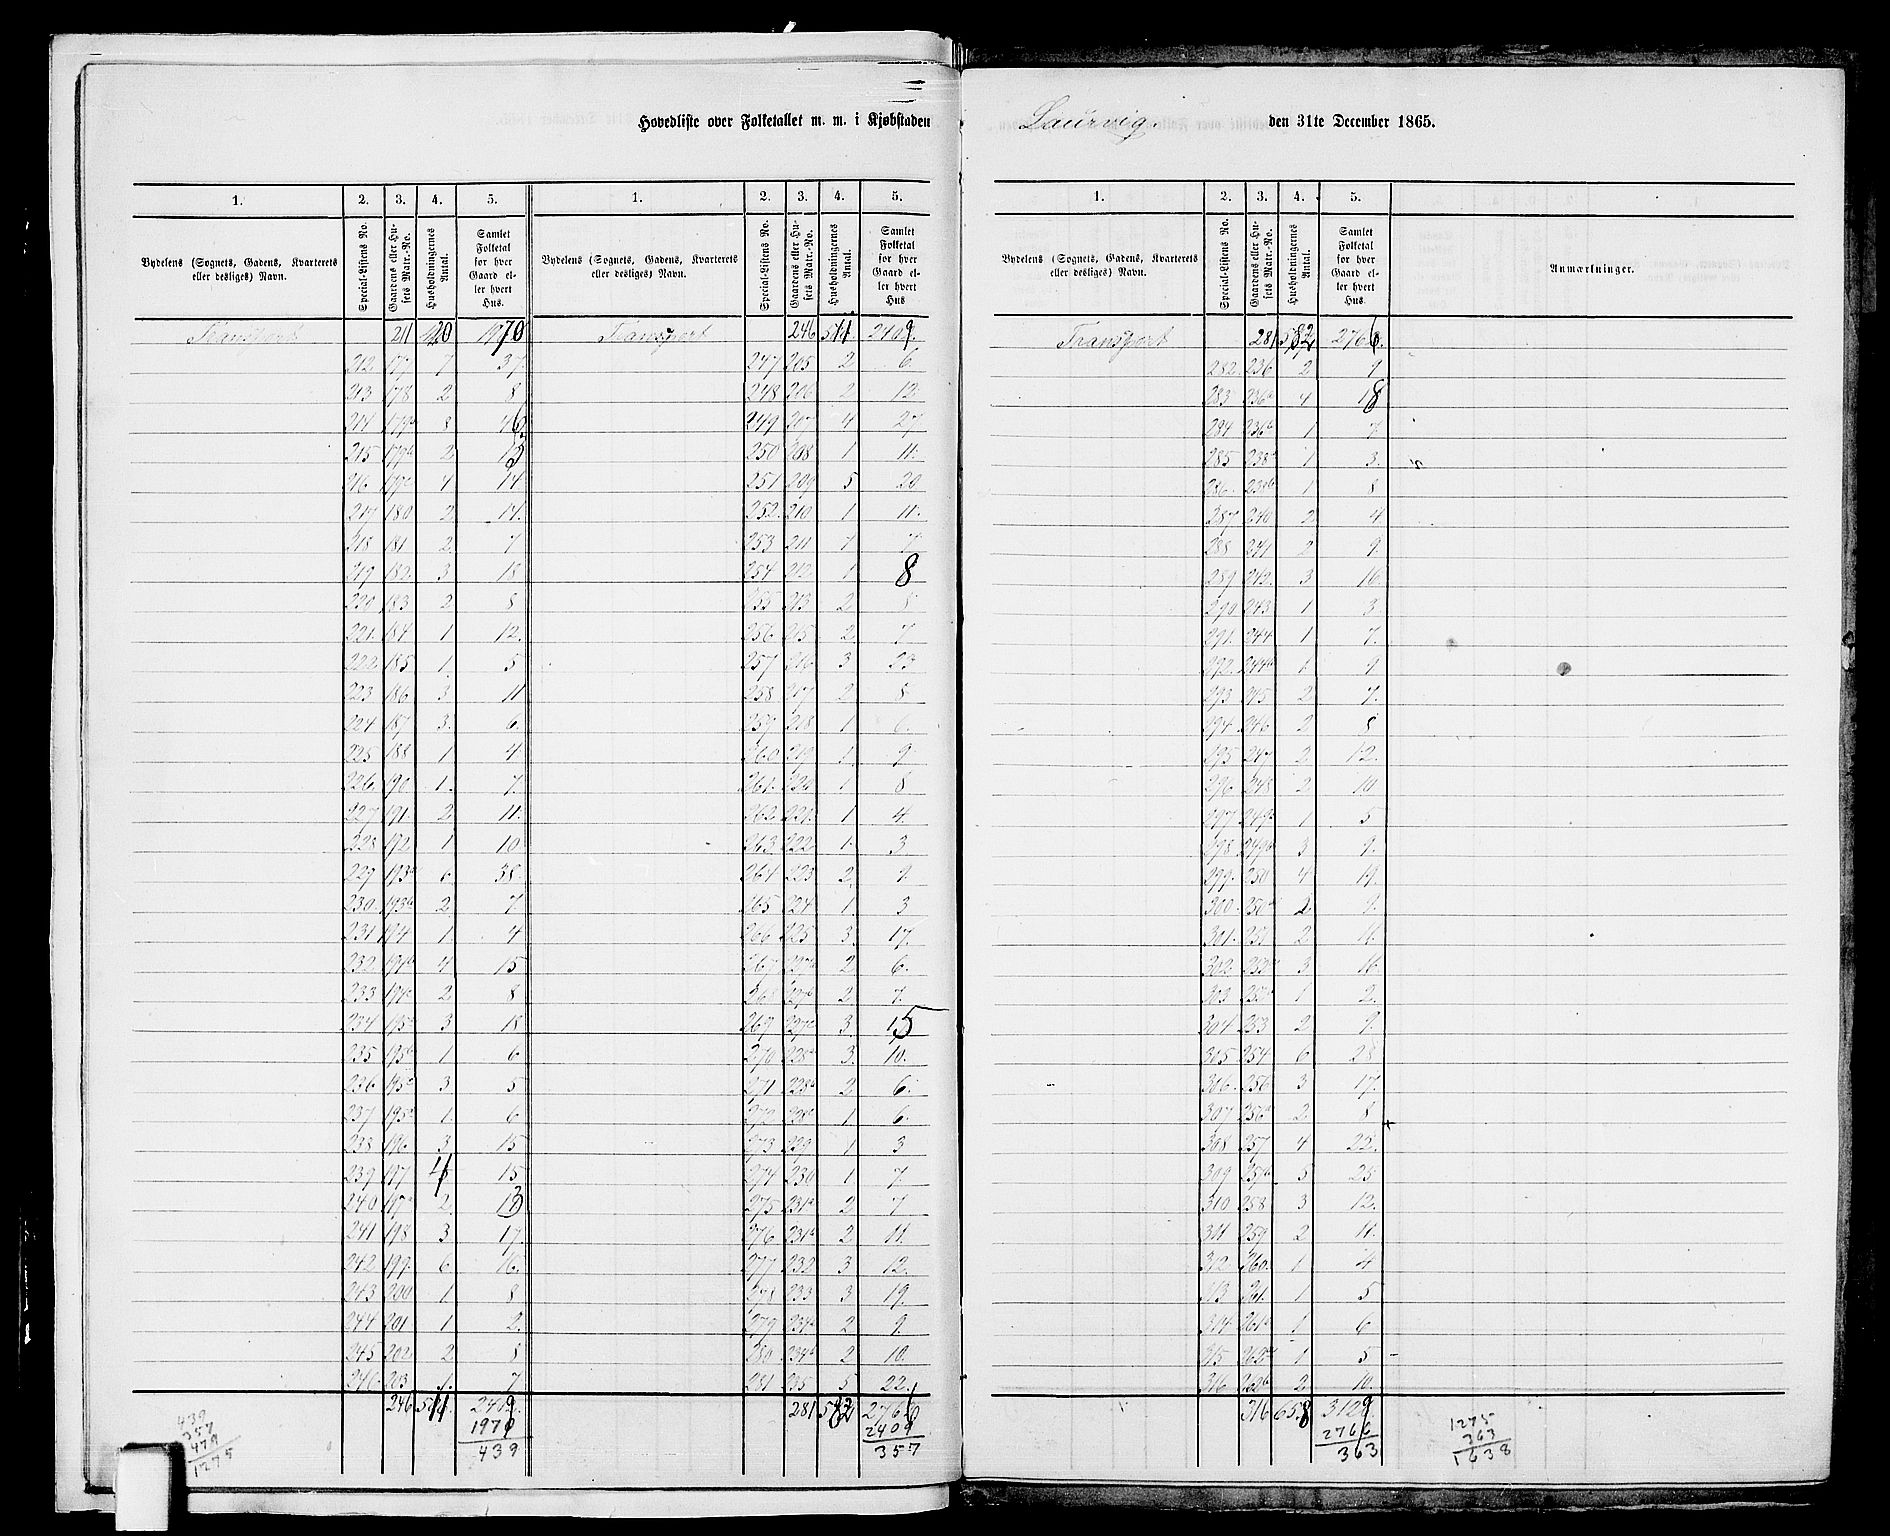 Hovedliste over Folketallet m. m. i Kjøbstaden Laurvig den 31te December 1865.
1. 2. 3. 4. 5. 1. 2. 3. 4. 5.
Bydelens (Sognets, Gadens, Kvarterets eller desliges) Navn. Special-Listens No. Gaardens eller Husets Matr.-No. Husholdningernes Antal. Samlet Folketal for hver Gaard eller hvert Hus
Bydelens (Sognets, Gadens, Kvarterets eller desliges) Navn. Special-Listens No. Gaardens eller Husets Matr.-No. Husholdningernes Antal. Samlet Folketal for hver Gaard eller hvert Hus
Transport 211 420 1970 Transport 246 511 2409.
212 177 7 37. 247 205 2 6.
213 178 2 8 248 206 2 12.
214 179a 8 46 249 207 4 27
215 179b 2 250 208 1 11.
216 179c 4 14 251 209 5 20
217 180 2 252 210 1 11.
218 181 2 7 253 211 1 7.
219 182 3 18 254 212 1 8
220 183 2 8 255 213 2 8
221 184 1 12. 256 215 2 7
222 185 1. 5 257 216 3 23
223 186 3 11 258 217 2 8
224 187 3. 6 259 218 1 6.
225 188 1 4 260 219 1. 9
226 190 1. 7. 261 220 1 8
227 191. 2 11. 262 221 1 4.
228 192 1 10 263 222 1. 3
229 193a 6 38. 264 223 2. 9.
230 193b 2 7 265 224 1. 3
231 194 1. 4 266 225 3. 17.
232 194b 4 15 267 227a 2 6.
233 194c 2 8 268 227b 2 7.
234 195a 3 18 269 227c 3. 15
235 195b 1 6 270 228a 3. 10.
236 195c 3 5 271 228b 2 6
237 195d 1. 6 272 228c 1 6.
238 196 3 15 273 229 1 3
239 197 4 15 274 230 1 7.
240 197a 2 13 275 231a 2 7
241 198 3 17. 276 231b 2 11.
242 199 6 16. 277 232 3 12.
243 200 1 8 278 233 3 19.
244 201 1 2. 279 234a 2 9.
245 202 2 8 280 234b 2 10
246 203 1. 7 281 235 5 22
246 511 2409 281 582 2766
1970 2409
439 357
439
357
479
1275
1. 2. 3. 4. 5.
Bydelens (Sognets, Gadens, Kvarterets eller desliges) Navn. Special-Listens No. Gaardens eller Husets Matr.-No. Husholdningernes Antal. Samlet Folketal for hver Gaard eller hvert Hus. Anmærkninger.
Transport 281 582 2766.
282. 236 2 9
283 236a 4 18
284 236b 1 7
285 238a 1 3.
286. 238b 1 8
287 240 2 4
288 241 2 9.
289 242. 3 16.
290 243 1 3
291. 244 1 7.
292. 244b 1. 9
293 245 2 7.
294 246 2 8
295 247 2 12.
296 248 2 10
297 249a 1 5
298 249b 3 9.
299. 250 4 19.
300. 250a 2 9.
301. 251 2 11.
302. 252a 3 16
303 252b 1 2.
304 253 2 9.
305 254. 6 28
306. 256 3 17.
307 256a 2 8
308 257 4 22.
309 257b 5 25
310 258 3 12.
311 259 2 11.
312 260. 1 4
313 261. 1 5
314 261a 1 6
315 262a 1 5
316 262b 2 10.
316 658 3129
2766
363
1275
363
1638